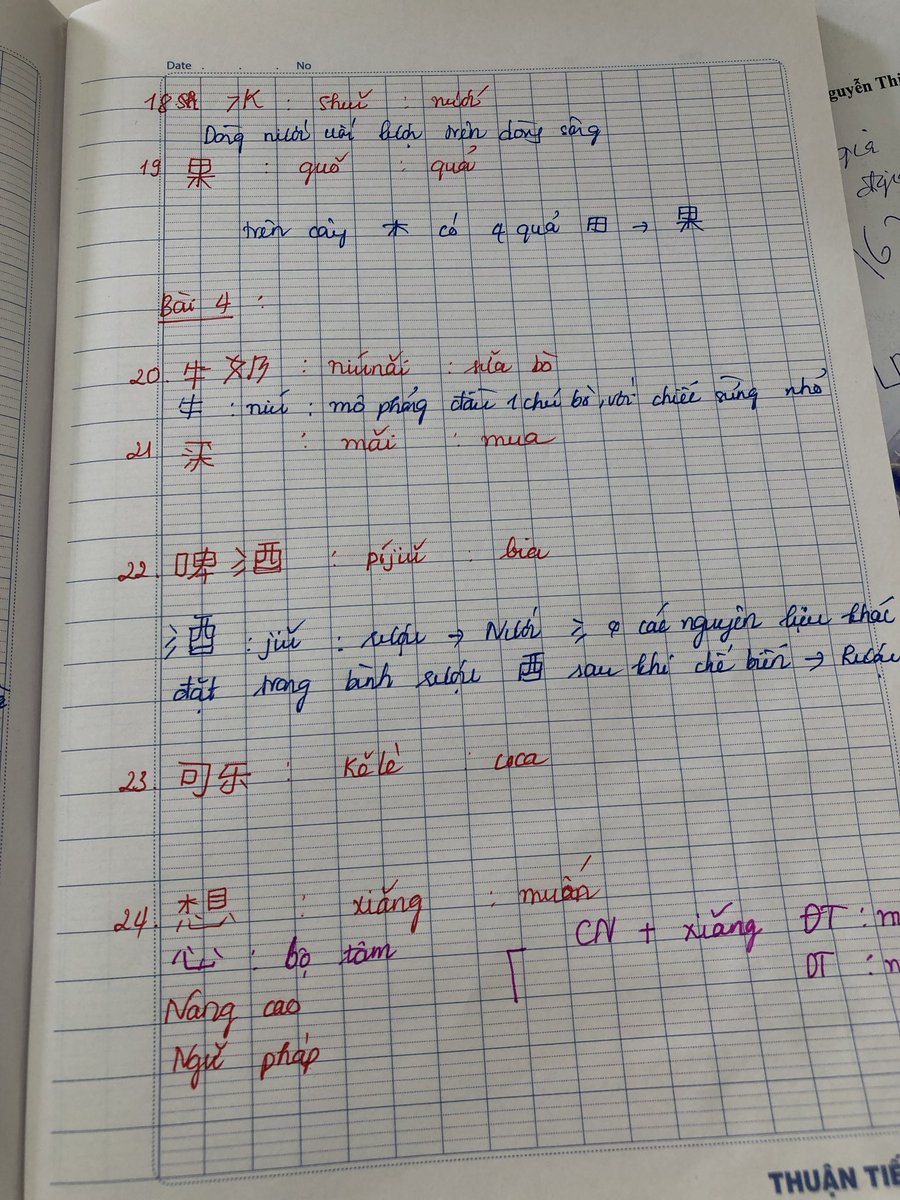 Date . . . No
18 水 : shuǐ : nước
Dòng nước uốn lượn trên dòng sông
19 果 : guǒ : quả
trên cây 木 có 4 quả 田 → 果
Bài 4 :
20. 牛奶 : niúnǎi : sữa bò
牛 : niú : mô phỏng đầu 1 chú bò, với chiếc sừng nhỏ
21 买 : mǎi : mua
22. 啤酒 : píjiǔ : bia
酒 : jiǔ : rượu → Nước 氵 các nguyên liệu khác
đặt trong bình rượu 酉 sau khi chế biến → Rượu
23. 可乐 : Kělè : coca
24. 想 : xiǎng : muốn
CN + xiǎng ĐT : m
心 : bộ tâm
DT : n
Nâng cao
Ngữ pháp
THUẬN TIẾ
guyễn Thị
già